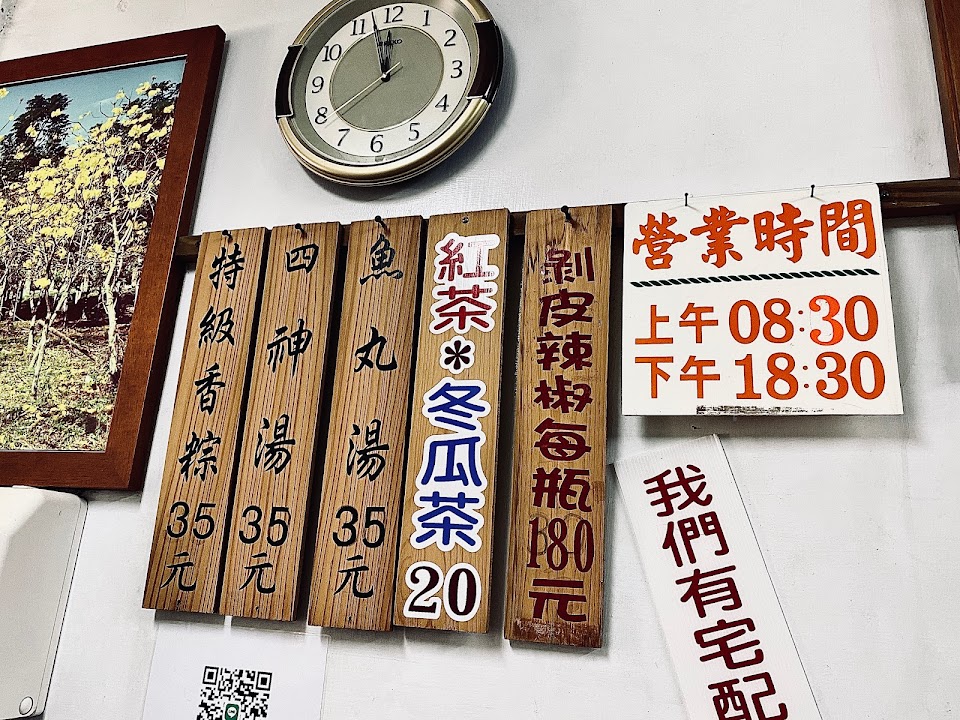 12
1
2
3
4
5
6
7
8
9
10
11
特級香粽35元
四神湯35元
魚丸湯35元
紅茶*冬瓜茶20
剝皮辣椒每瓶180元
營業時間
上午08:30
下午18:30
我們有宅配